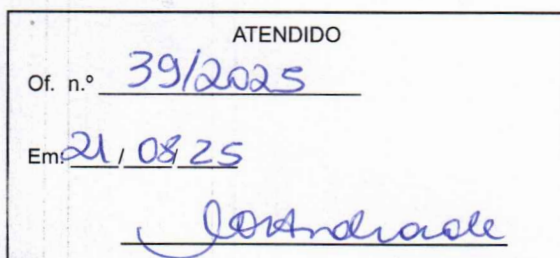 ATENDIDO
Of. n.º 39/2025
Em: 21/08/25